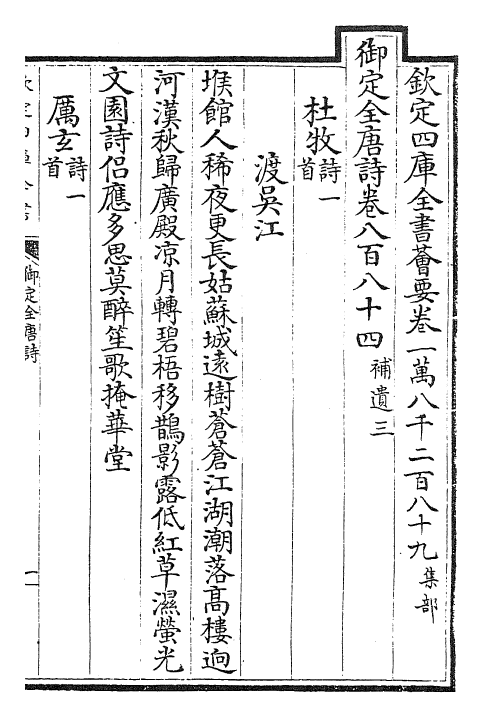 欽定四庫全書薈要卷一萬八千二百八十九 集部
御定全唐詩卷八百八十四 補遺三
杜牧 詩一首
渡吳江
堠館人稀夜更長姑蘇城遠樹蒼蒼江湖潮落高樓逈
河漢秋歸廣殿凉月轉碧梧移鵲影露低紅草濕螢光
文園詩侣應多思莫醉笙歌掩華堂
厲玄 詩一首
御定全唐詩
一